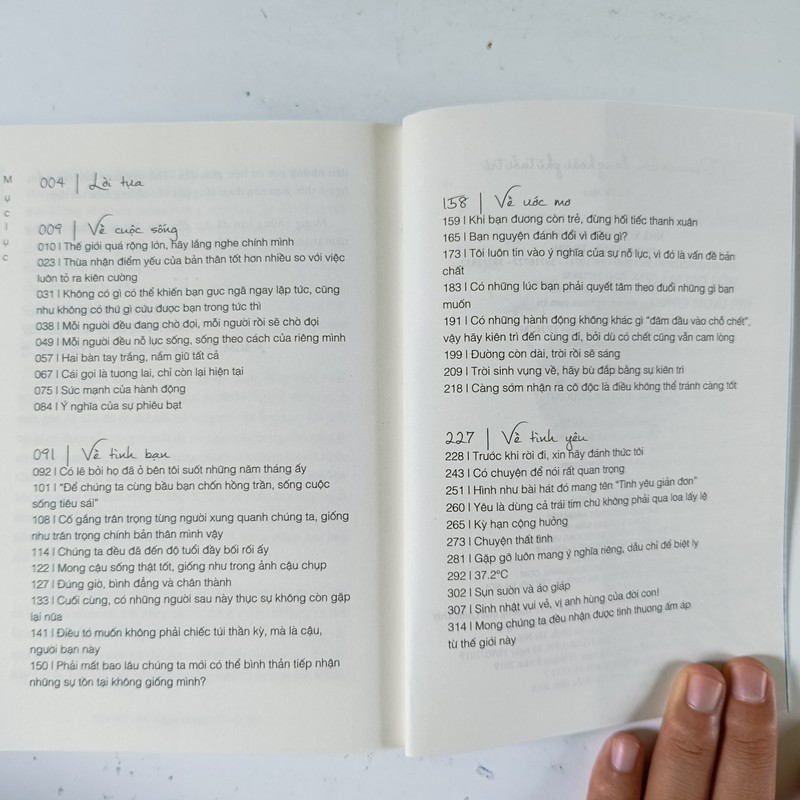 Mục lục
004 | Lời tựa
009 | Về cuộc sống
010 | Thế giới quá rộng lớn, hãy lắng nghe chính mình
023 | Thừa nhận điểm yếu của bản thân tốt hơn nhiều so với việc
luôn tỏ ra kiên cường
031 | Không có gì có thể khiến bạn gục ngã ngay lập tức, cũng
như không có thứ gì cứu được bạn trong tức thì
038 | Mỗi người đều đang chờ đợi, mỗi người rồi sẽ chờ đợi
049 | Mỗi người đều nỗ lực sống, sống theo cách của riêng mình
057 | Hai bàn tay trắng, nắm giữ tất cả
067 | Cái gọi là tương lai, chỉ còn lại hiện tại
075 | Sức mạnh của hành động
084 | Ý nghĩa của sự phiêu bạt
091 | Về tình bạn
092 | Có lẽ bởi họ đã ở bên tôi suốt những năm tháng ấy
101 | "Để chúng ta cùng bầu bạn chốn hồng trần, sống cuộc
sống tiêu sái"
108 | Cố gắng trân trọng từng người xung quanh chúng ta, giống
như trân trọng chính bản thân mình vậy
114 | Chúng ta đều đã đến độ tuổi đầy bối rối ấy
122 | Mong cậu sống thật tốt, giống như trong ảnh cậu chụp
127 | Đúng giờ, bình đẳng và chân thành
133 | Cuối cùng, có những người sau này thực sự không còn gặp
lại nữa
141 | Điều tớ muốn không phải chiếc túi thần kỳ, mà là cậu,
người bạn này
150 | Phải mất bao lâu chúng ta mới có thể bình thản tiếp nhận
những sự tồn tại không giống mình?
158 | Về ước mơ
159 | Khi bạn đương còn trẻ, đừng hối tiếc thanh xuân
165 | Bạn nguyện đánh đổi vì điều gì?
173 | Tôi luôn tin vào ý nghĩa của sự nỗ lực, vì đó là vấn đề bản
chất
183 | Có những lúc bạn phải quyết tâm theo đuổi những gì bạn
muốn
191 | Có những hành động không khác gì "đâm đầu vào chỗ chết",
vậy hãy kiên trì đến cùng đi, bởi dù có chết cũng vẫn cam lòng
199 | Đường còn dài, trời rồi sẽ sáng
209 | Trời sinh vụng về, hãy bù đắp bằng sự kiên trì
218 | Càng sớm nhận ra cô độc là điều không thể tránh càng tốt
227 | Về tình yêu
228 | Trước khi rời đi, xin hãy đánh thức tôi
243 | Có chuyện để nói rất quan trọng
251 | Hình như bài hát đó mang tên "Tình yêu giản đơn"
260 | Yêu là dùng cả trái tim chứ không phải qua loa lấy lệ
265 | Kỳ hạn cộng hưởng
273 | Chuyện thất tình
281 | Gặp gỡ luôn mang ý nghĩa riêng, dẫu chỉ để biệt ly
292 | 37.2°C
302 | Sụn sườn và áo giáp
307 | Sinh nhật vui vẻ, vị anh hùng của đời con!
314 | Mong chúng ta đều nhận được tình thương ấm áp
từ thế giới này